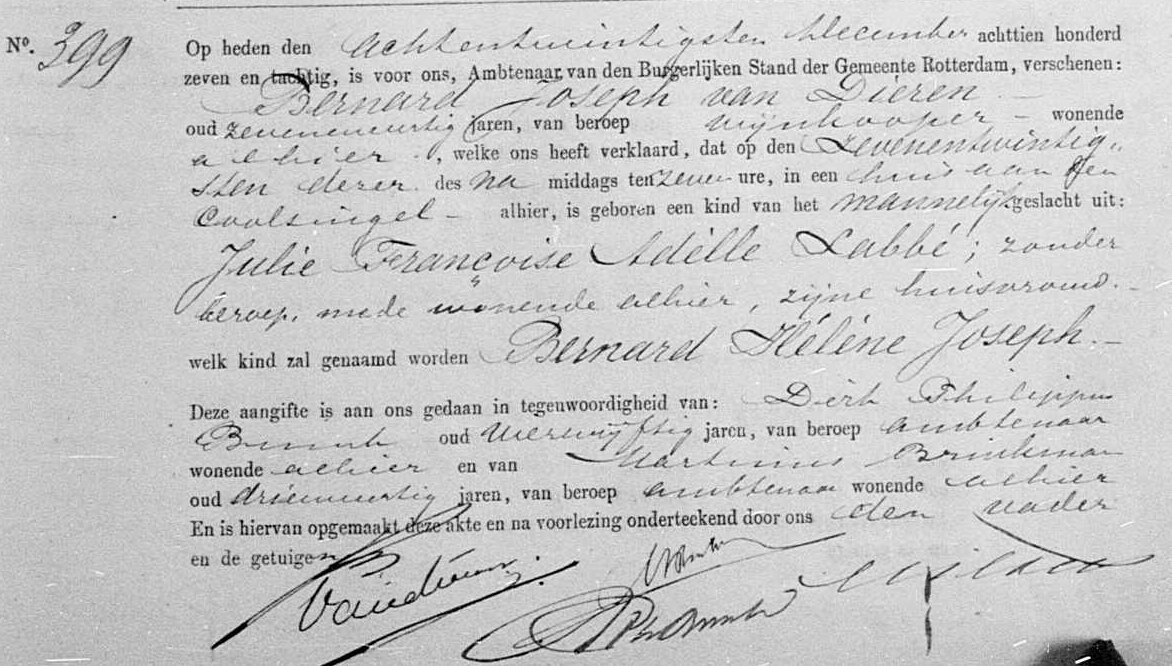 No. 399
Op heden den achtentwintigsten December achttien honderd
zeven en tachtig, is voor ons, Ambtenaar van den Burgerlijken Stand der Gemeente Rotterdam, verschenen:
Bernard Joseph van Dieren –
oud zevenenveertig jaren, van beroep wijnkooper – wonende
alhier, welke ons heeft verklaard, dat op den zevenentwintig-
sten dezer des na middags ten zeven ure, in een huis aan den
Coolsingel – alhier, is geboren een kind van het mannelijk geslacht uit:
Julie Françoise Adélle Labbé; zonder
beroep, mede wonende alhier, zijne huisvrouw. –
welk kind zal genaamd worden Bernard Hélène Joseph. –
Deze aangifte is aan ons gedaan in tegenwoordigheid van: Dirk Philippus
oud vierenvijftig jaren, van beroep ambtenaar
wonende alhier en van Martinus Brinkman
oud drieenveertig jaren, van beroep ambtenaar wonende alhier
En is hiervan opgemaakt deze akte en na voorlezing onderteekend door ons den vader
en de getuigen
VanDieren